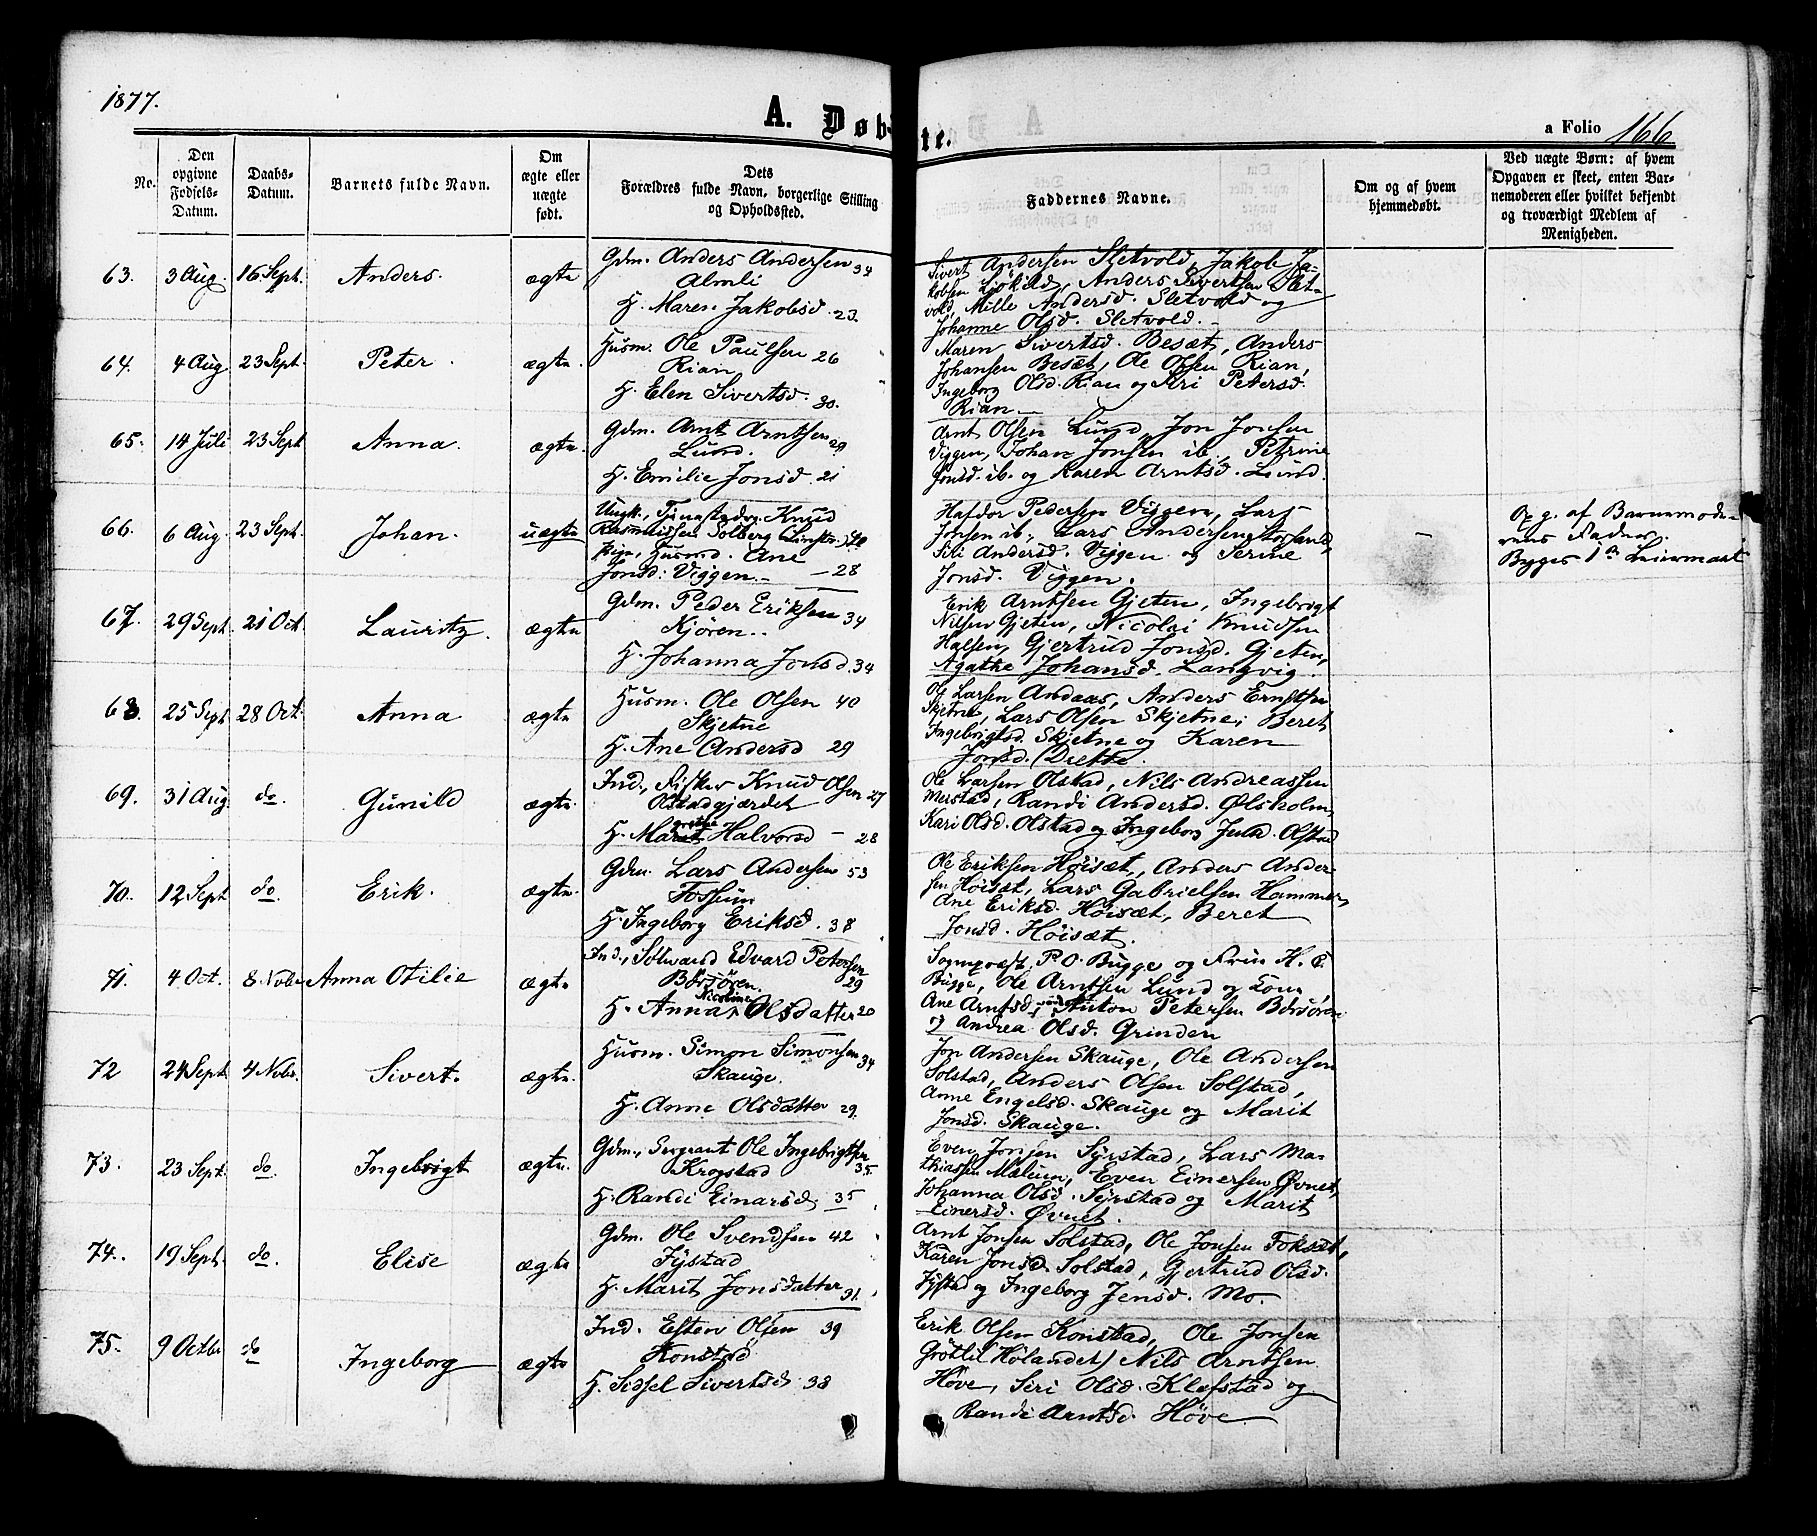 1877.
A. Døb-
te.
a Folio 166
No.
Den
opgivne
Fødsels-
Datum.
Daabs-
Datum.
Barnets fulde Navn.
Om
ægte eller
uægte
født.
Dets
Forældres fulde Navn, borgerlige Stilling
og Opholdssted.
Faddernes Navne.
Om og af hvem
hjemmedøbt.
Ved uægte Børn: af hvem
Opgaven er skeet, enten Bar-
nemoderen eller hvilket bekjendt
og troværdigt Medlem af
Menigheden.
63. 3 Aug. 16 Sept. Anders. ægte
Gdm. Anders Andersen 34
Almli
H. Maren Jakobsd. 23.
Sivert Andersen Sletvold, Jakob Ja-
kobsen, Anders Sivertsen Slet-
vold, Mille Andersd. Sletvold og
Johanne Olsd. Sletvold.
64. 4 Aug 23 Sept. Peter. ægte.
Husm. Ole Paulsen 26
Rian
H. Elen Sivertsd. 30.
Maren Sivertsd. Besæt, Anders
Johansen Besæt, Ole Olsen Rian,
Ingeborg Olsd. Rian og Siri Petersd.
Rian.
65. 14 Juli 23 Sept Anna. ægte.
Gdm. Arnt Arntsen 29
Lund.
H. Emilie Jonsd 21
Arnt Olsen Lund, Jon Jonsen
Viggen, Johan Jonsen ib., Petrine
Jonsd. ib. og Karen Arntsd. Lund.
66. 6 Aug. 23 Sept. Johan. uægte
Ungk., Knud
Rasmussen Solberg
Ane
Jonsd: Viggen. - 28
Haldor Pedersen Viggen, Lars
Jonsen ib., Lars Andersen Storsand,
Siri Andersd. Viggen og Serine
Jonsd. Viggen.
Opg. af Barnemode-
rens Fader.
Begges 1ste Leiermaal
67. 29 Sept. 21 Oct. Lauritz. ægte
Gdm. Peder Eriksen 34
Kjören.
H. Johanna Jonsd. 34
Erik Arntsen Gjeten, Ingebrigt
Nilsen Gjeten, Nicolai Knudsen
Halsen, Gjertrud Jonsd. Gjeten,
Agathe Johansd. Langvig.
68. 25 Sept 28 Oct. Anna ægte
Husm. Ole Olsen 40
Skjetne
H. Ane Andersd 29
Ole Larsen Andaas, Anders Erntsen
Skjetne, Lars Olsen Skjetne, Beret
Ingebrigtsd. Skjetne og Karen
Jonsd.
69. 31 Aug do. Gunild ægte.
Ind., Fisker Knud Olsen 27
Olstadgjærdet
H. Maregrethe Halvorsd - 28
Ole Larsen Olstad, Nils Andreassen
Merstad, Randi Andersd. Ølsholm,
Kari Olsd. Olstad og Ingeborg Olstad
70. 12 Sept do. Erik. ægte.
Gdm. Lars Andersen 53
Fossum
H. Ingeborg Eriksd. 38
Ole Eriksen Høisæt, Anders Ander-
sen Høisæt, Lars Gabrielsen Hammer,
Ane Eriksd. Høisæt, Beret
Jonsd. Høisæt.
71. 4 Oct. 8 Novbr Anna Otilie ægte
Ind., Edvard Petersen
Børsøren. 29
H. Anna Nicoline Olsdatter 20
Sognepræst P. O. Bugge og Frue H. C.
Bugge, Ole Arntsen Lund og Kone
Ane Arntsd., Anton Petersen Børsøren
og Andrea Olsd. Grinden
72 24 Sept. 4 Novbr. Sivert. ægte.
Husm. Simon Simonsen 34
Skauge.
H. Anne Olsdatter 29.
Jon Andersen Skauge, Ole Andersen
Solstad, Anders Olsen Solstad,
Anne Engelsd. Skauge og Marit
Jonsd. Skauge.
73. 23 Sept. do. Ingebrigt ægte.
Gdm., Sergeant Ole Ingebrigtsen
Krogstad 35.
H. Randi Einarsd. 35
Even Jonsen Syrstad, Lars Ma-
thiassen Mælum, Even Einersen Øvnet,
Johanna Olsd. Syrstad og Marit
Einersd. Øvnet.
74. 19 Sept. do. Elise ægte
Gdm. Ole Svendsen 42
Fystad
H. Marit Jonsdatter 31.
Arnt Jonsen Solstad, Ole Jonsen Foksæt,
Karen Jonsd. Solstad, Gjertrud Olsd.
Fystad og Ingeborg Jensd. Mo.
75. 9 Octbr do Ingeborg ægte
Ind. Esten Olsen 39
Konstad
H. Sidsel Sivertsd 38
Erik Olsen Konstad, Ole Jonsen
Grøtli (Hølandet) Nils Arntsen
Høve, Seri Olsd. Klefstad og
Randi Arntsd. Høve